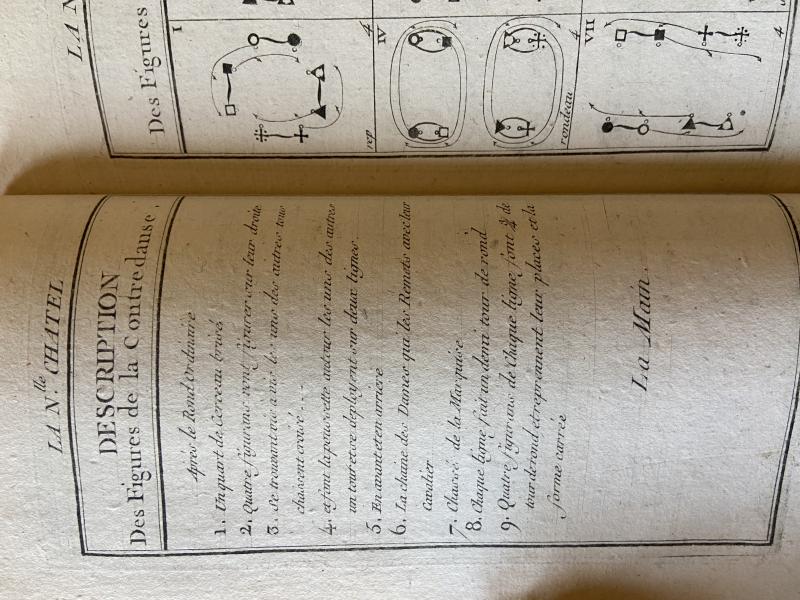 LA N.lle CHATEL
DESCRIPTION
Des Figures de la Contredanse.
Après le Rond Ordinaire
1. Un quart de Cerceau brisés
2. Quatre figurans vont figurer sur leur droite
3. Se trouvant vis a vis les uns des autres tous
chassent croisé ...
4. et font la poussette autour les uns des autres
un tour et se déployent sur deux lignes
5. En avant et en arriere
6. La chaîne des Dames qui les Remets avec leur
Cavalier
7. Chassés de la Marquise
8. Chaque ligne fait un demi tour de rond
9. Quatre figurans de Chaque ligne font ¾ de
tour de rond et reprennent leur places et la
forme carrée
La Main.
LA N
Des Figures
I
4
rep
IV
4
rondeau
VII
4